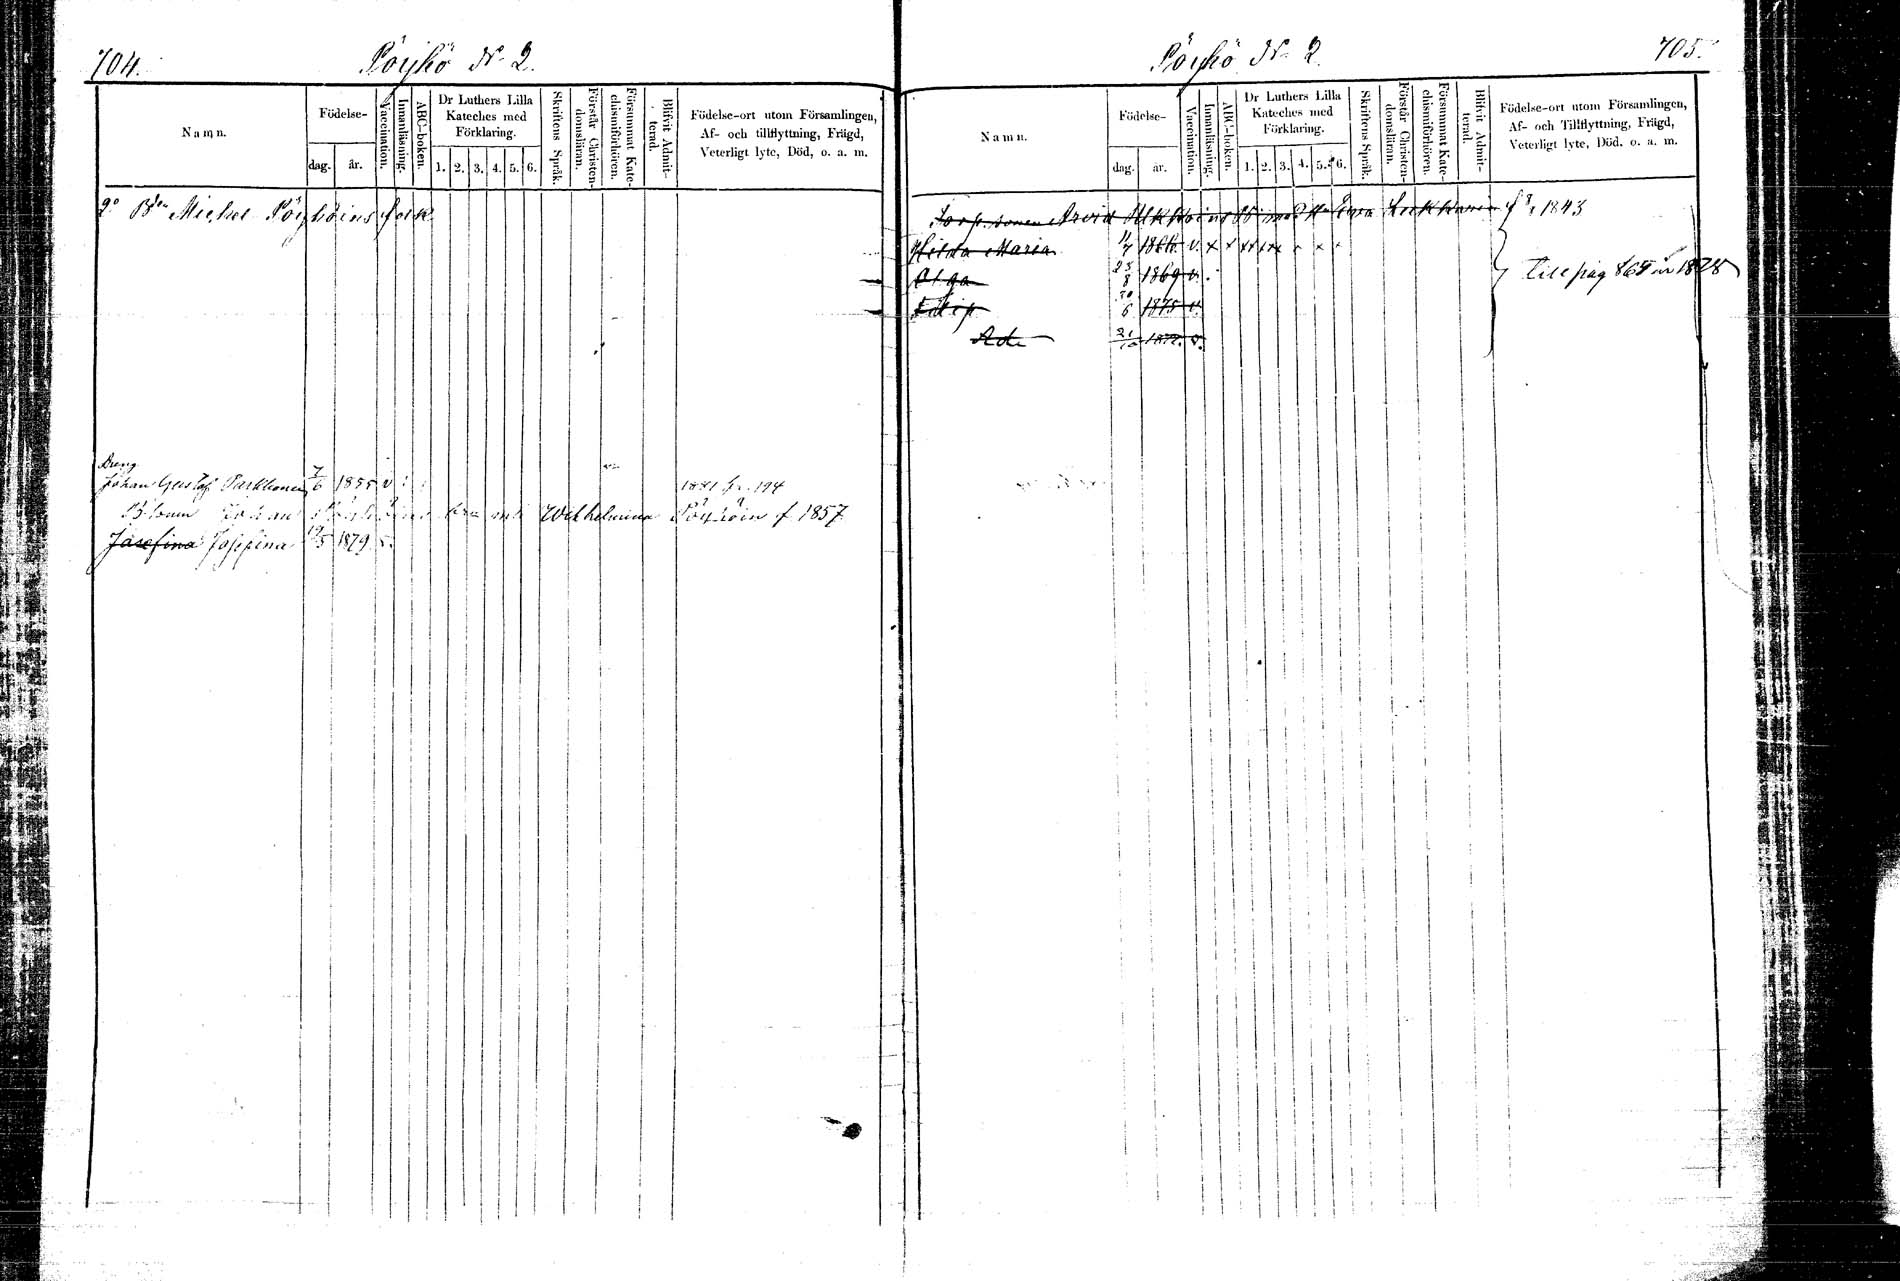 704.
Pöyhö N° 2.
Namn.
Födelse-
dag. år.
Vaccination.
Innanläsning.
ABC-boken.
Dr Luthers Lilla
Kateches med
Förklaring.
1. 2. 3. 4. 5. 6.
Skriftens Språk.
Förstår Christen-
domsläran.
Försummat Kate-
chismiförhören.
Blifvit Admit-
terad.
Födelse-ort utom Församlingen,
Af- och tillflyttning, Frägd,
Veterligt lyte, Död, o. a. m.
2° Bdn Michel Pöyhöins folk
Dreng
Johan Gustaf Parkkonen 7/6 1855 v 1881 194
Johan Wilhelmina Pöyhöin f 1857
Josefina Josefina 19/5 1879 v.
705.
Pöyhö N° 2.
Namn.
Födelse-
dag. år.
Vaccination.
Innanläsning.
ABC-boken.
Dr Luthers Lilla
Kateches med
Förklaring.
1. 2. 3. 4. 5. 6.
Skriftens Språk.
Förstår Christen-
domsläran.
Försummat Kate-
chismiförhören.
Blifvit Admit-
terad.
Födelse-ort utom Församlingen,
Af- och Tillflyttning, Frägd,
Veterligt lyte, Död. o. a. m.
Arvid Ukkoins Eva Lukkarin 1843
Hilda Maria 11/7 1866 v. x x xx xx x x
Olga 28/8 1869 v.
Filip 30/6 1875 v.
Ada 21/10 1872. v.
till pag 865 1878